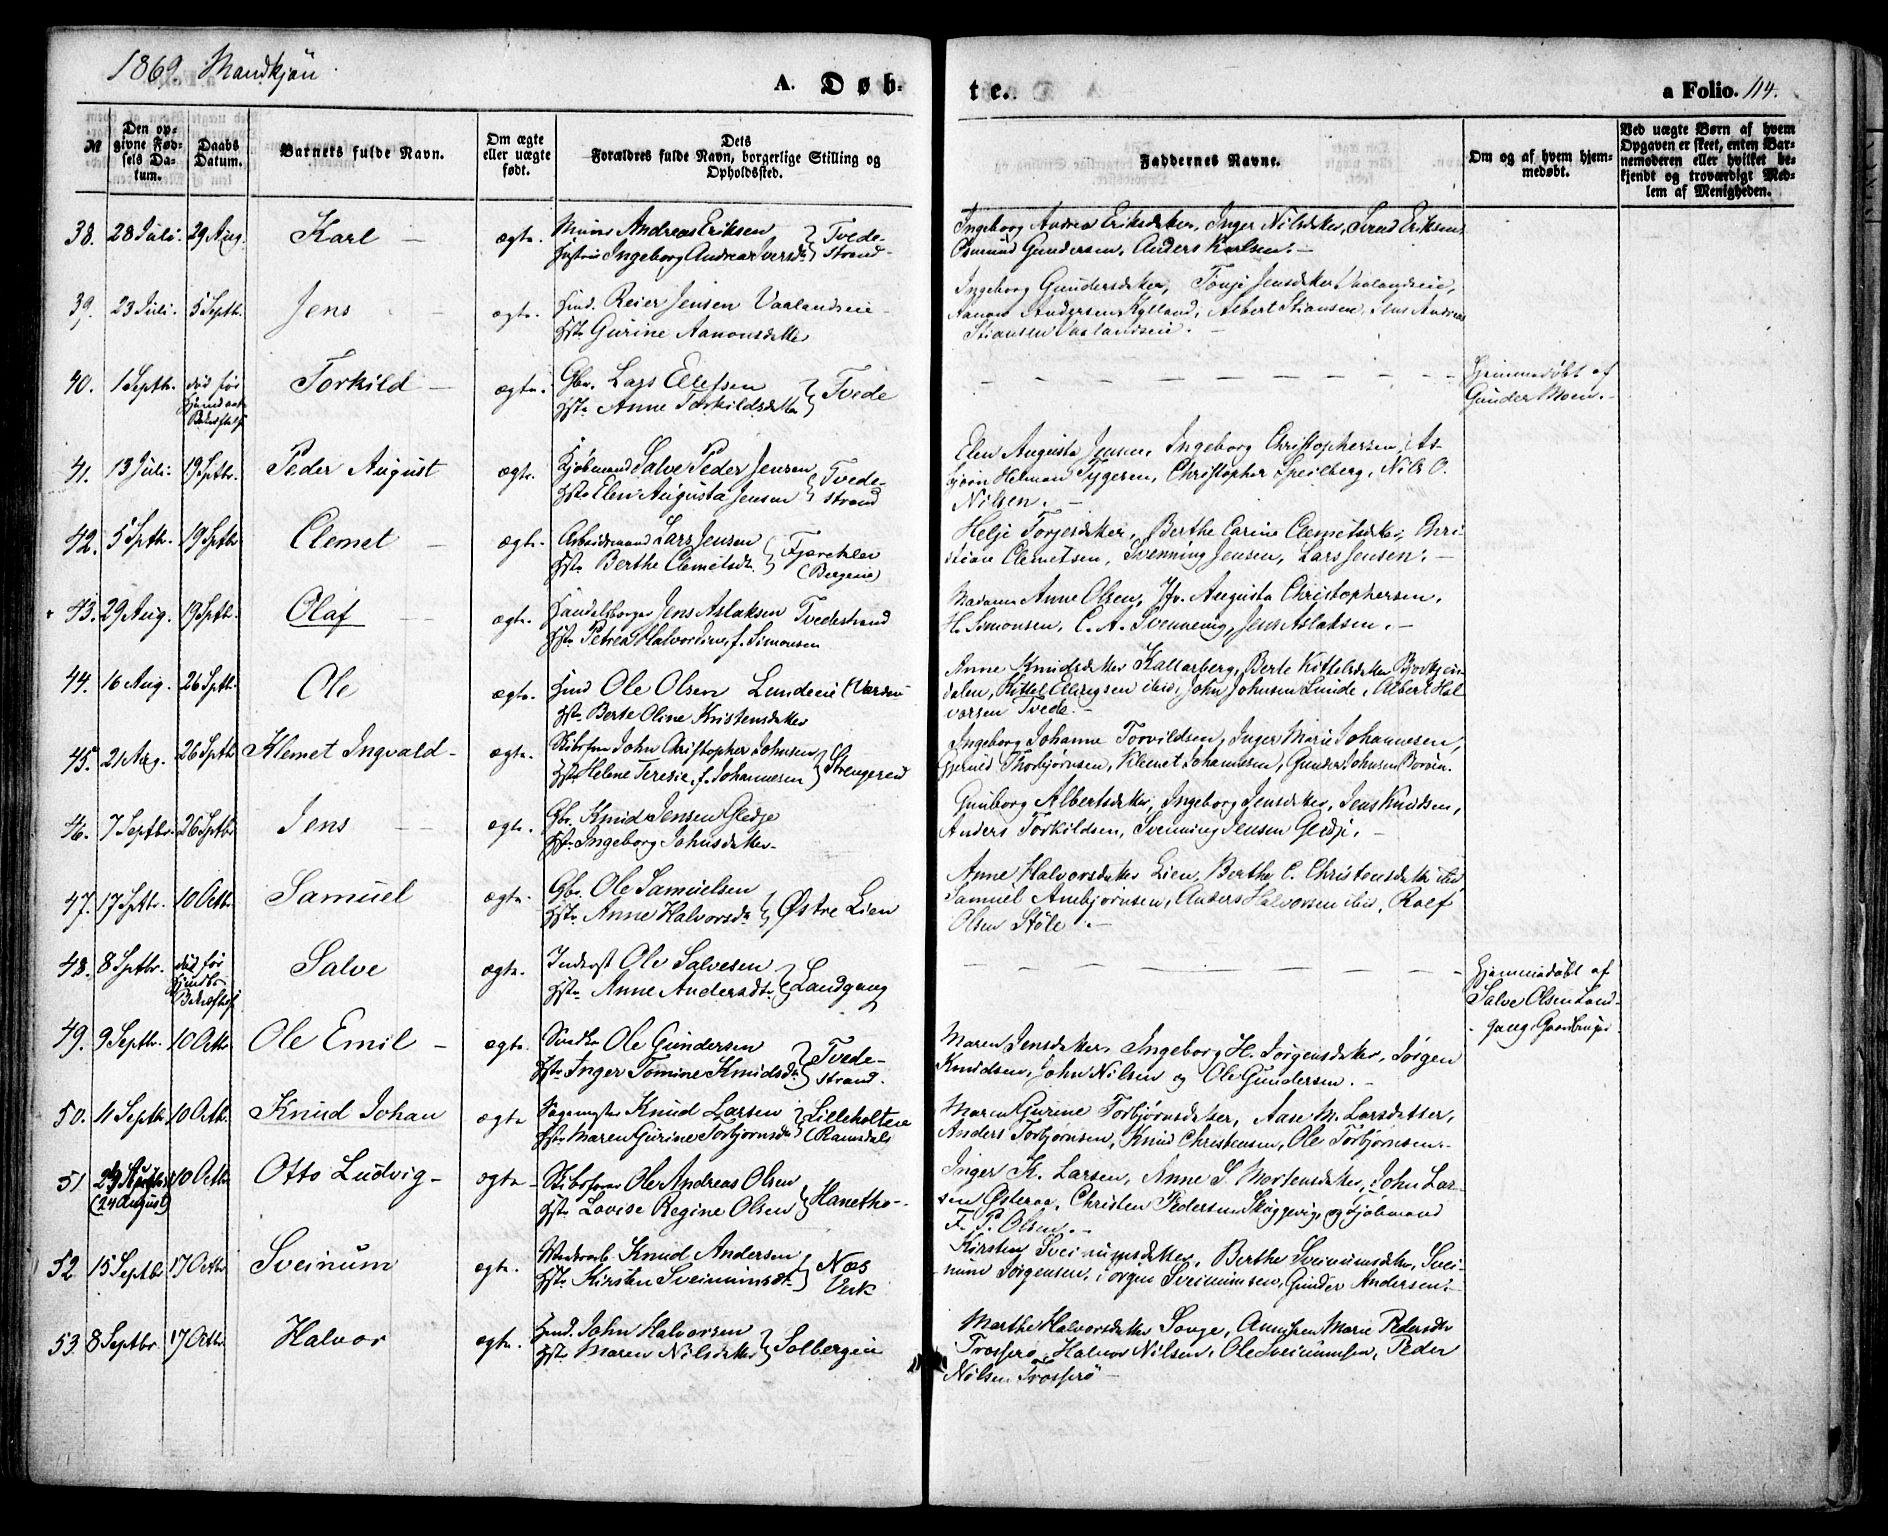 1869 Mandkjön
A. Døb-
te.
a Folio. 114.
№
Den op-
givne Fød-
sels Da-
tum.
Daabs
Datum.
Barnets fulde Navn.
Om ægte
eller uægte
født.
Dets
Forældres fulde Navn, borgerlige Stilling og
Opholdssted.
Faddernes Navne.
Om og af hvem hjem-
medøbt.
Ved uægte Børn af hvem
Opgaven er skeet, enten Bar-
nemoderen eller hvilket be-
kjendt og troværdigt Med-
lem af Menigheden.
38. 28 Juli. 29 Aug. Karl ægte. Andreas Eriksen
Ingeborg Andrea Iversd. Tvede-
strand
Ingeborg Andrea Eriksdatter, Inger Nilsdatter, Svend Eriksen,
Osmund Gundersen, Anders Karlsen.
39. 23 Juli. 5 Septb. Jens ægte. Hmd. Reier Jensen Vaalandseie
Hstr. Gurine Aanonsdatter
Ingeborg Gundersdatter, Tonje Jensdatter Vaalandseie,
Aanon Andersen Kylland, Albert Stiansen, Jens Andreas
Stiansen Vaalandseie.
40. 1 Septb. død før Torkild ægte. Gbr. Lars Ellefsen
Hstr. Anne Torkildsdatter Tvede
Hjemmedøbt af
Gunder Moen.
41. 13 Juli. 19 Septbr. Peder August ægte. Kjøbmand Salve Peder Jensen
Hstr. Elen Augusta Jensen Tvede-
strand
Elen Augusta Jensen, Ingeborg Christophersen, As-
bjørn Helman Tygesen, Christopher Speilberg, Nils O.
Nilsen.
42. 5 Septb. 19 Septbr Clemet ægte. Arbeidsmand Lars Jensen
Hstr. Berthe Clemetsd.
Helje Torjesdatter, Berthe Carine Clemetsdatter, Chri-
stian Clemetsen, Svenning Jensen, Lars Jensen.
43. 29 Aug. 19 Septb. Olaf ægte. Handelsborger Jens Aslaksen Tvedestrand
Hstr. Petrea Halvordine, f. Simonsen
Madame Anne Olsen, Jfr. Augusta Christophersen,
H. Simonsen, C. A. Svennevig, Jens Aslaksen.
44. 16 Aug. 26 Septb. Ole ægte. Hmd Ole Olsen Lundeeie
Hstr. Berte Oline Kristensdatter
Anne Knudsdatter Kallarberg, Berte Kittelsdatter
dalen, Kittel ibid, John Johnsen Lunde, Albert Hal-
vorsen Tvede.
45. 21 Aug. 26 Septb Klemet Ingvald ægte. Skibsfører John Christopher Johnsen
Hstr. Helene Teresie, f. Johannesen Strengereid
Ingeborg Johanne Torvildsen, Inger Marie Johannesen,
Thorbjørnsen, Klemet Johannesen, Gunder Johnsen
46. 7 Septbr. 26 Septbr Jens ægte. Gbr. Knud Jensen Gledje
Hstr. Ingeborg Johnsdatter
Gunborg Albertsdatter, Ingeborg Jensdatter, Jens Knudsen,
Anders Torkildsen, Svenning Jensen Gledje.
47. 17 Septbr. 10 Octbr. Samuel ægte. Gbr. Ole Samuelsen
Hstr. Anne Halvorsd. Østre Lien
Anne Halvorsdatter Lien, Berthe C. Christensdatter ibid
Samuel Anbjørnsen, Anders Halvorsen ibid, Rolf
Olsen Støle.
48. 8 Septbr. død før Salve ægte. Inderst Ole Salvesen
Hstr. Anne Andersdtr. Landgang
Hjemmedøbt af
Salve Olsen Land-
gang, Gaardbruger
49. 9 Septbr. 10 Octbr. Ole Emil ægte. Snedker Ole Gundersen
Hstr. Inger Tomine Knudsd. Tvede-
strand.
Maren Jensdatter, Ingeborg H. Jørgensdatter, Jørgen
Knudsen, John Nilsen og Ole Gundersen.
50. 11 Septb. 10 Octb. Knud Johan ægte Sagmester Knud Larsen
Hstr. Maren Gurine Torbjørnsd. Lilleholteie
(Ramsdals
Maren Gurine Torbjørnsdatter, Aase M. Larsdatter,
Anders Torbjørnsen, Knud Christensen, Ole Torbjørnsen.
51
(24 August) 10 Octbr Otto Ludvig ægte Skibsfører Ole Andreas Olsen
Hstr. Lovise Regine Olsen Hanetho
Inger K. Larsen, Anne S. Mortensdatter, John Lar-
sen Østeraa, Christen Pedersen Skuggevig og Kjøbmand
F. P. Olsen.
52 15 Septbr 17 Octbr Sveinum ægte. Knud Andersen
Hstr. Kirsten Sveinumsdt. Næs
Verk
Kirsten Sveinumsdatter, Berthe Sveinumsdatter, Svei-
num Jørgensen, Jørgen Sveinumsen, Gunder Andersen.
53. 8 Septbr 17 Octbr Halvor ægte. Hmd. John Halvorsen
Hstr. Maren Nilsdatter Solbergeie
Marthe Halvorsdatter Songe, Anne Marie Pedersdtr
Trosserø, Halvor Nilsen, Ole Sveinumsen, Peder
Nilsen Trosserö